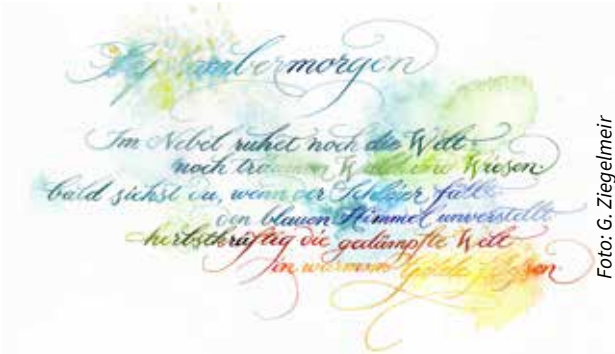 Septembermorgen
Im Nebel ruhet noch die Welt
noch träumen Wald und Wiesen
bald siehst du, wenn der Schleier fällt
den blauen Himmel unverstellt
herbstkräftig die gedämpfte Welt
in warmem Golde fließen.
Foto: G. Ziegelmeir